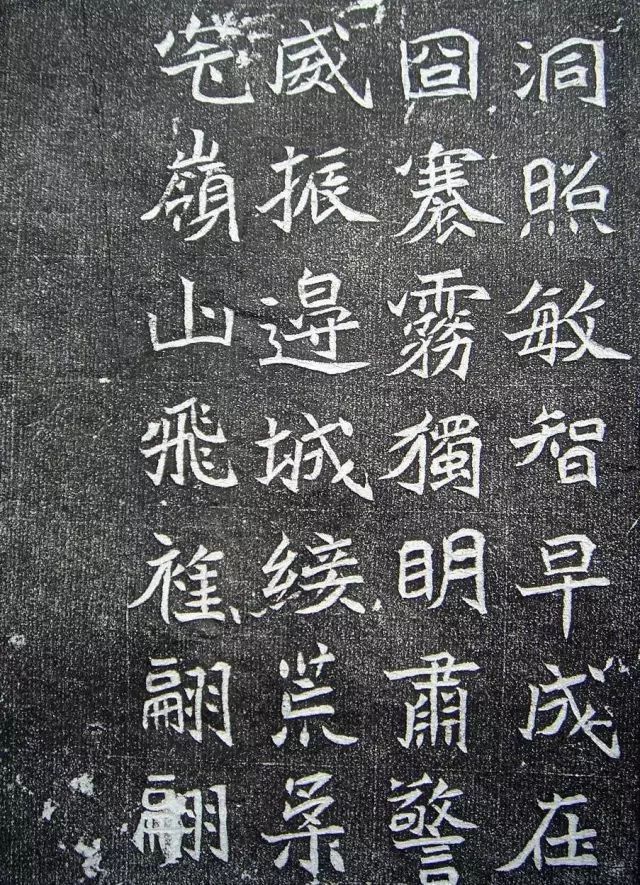 洞照敏智早成在
囧褰霧獨明肅警
威振邊城綏荒
嶺山飛翩翩